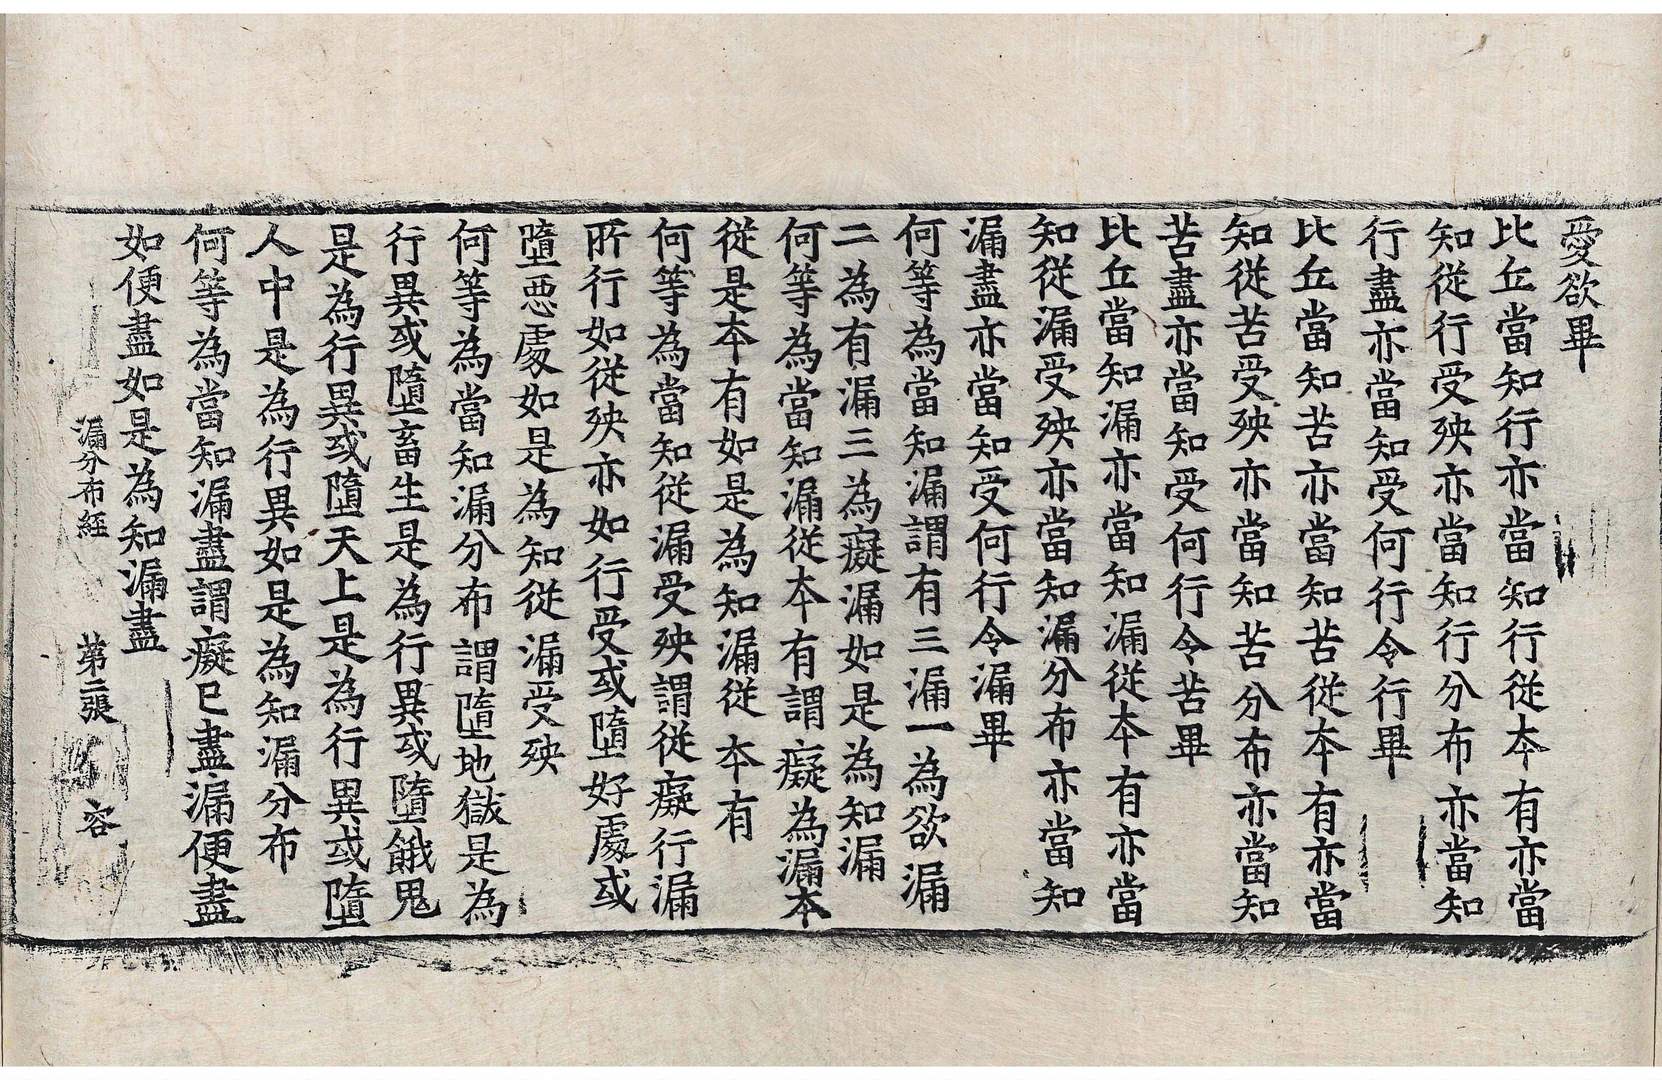 愛欲畢
比丘當知行亦當知行從夲有亦當
知從行受殃亦當知行分布亦當知
行盡亦當知受何行令行畢
比丘當知苦亦當知苦從夲有亦當
知從苦受殃亦當知苦分布亦當知
苦盡亦當知受何行令苦畢
比丘當知漏亦當知漏從夲有亦當
知從漏受殃亦當知漏分布亦當知
漏盡亦當知受何行令漏畢
何等為當知漏謂有三漏一為欲漏
二為有漏三為癡漏如是為知漏
何等為當知漏從夲有謂癡為漏夲
從是夲有如是為知漏從夲有
何等為當知從漏受殃謂從癡行漏
所行如從殃亦如行受或墮好處或
墮惡處如是為知從漏受殃
何等為當知漏分布謂墮地獄是為
行異或墮畜生是為行異或墮餓鬼
是為行異或墮天上是為行異或墮
人中是為行異如是為知漏分布
何等為當知漏盡謂癡已盡漏便盡
如便盡如是為知漏盡
漏分布經 第二張 容